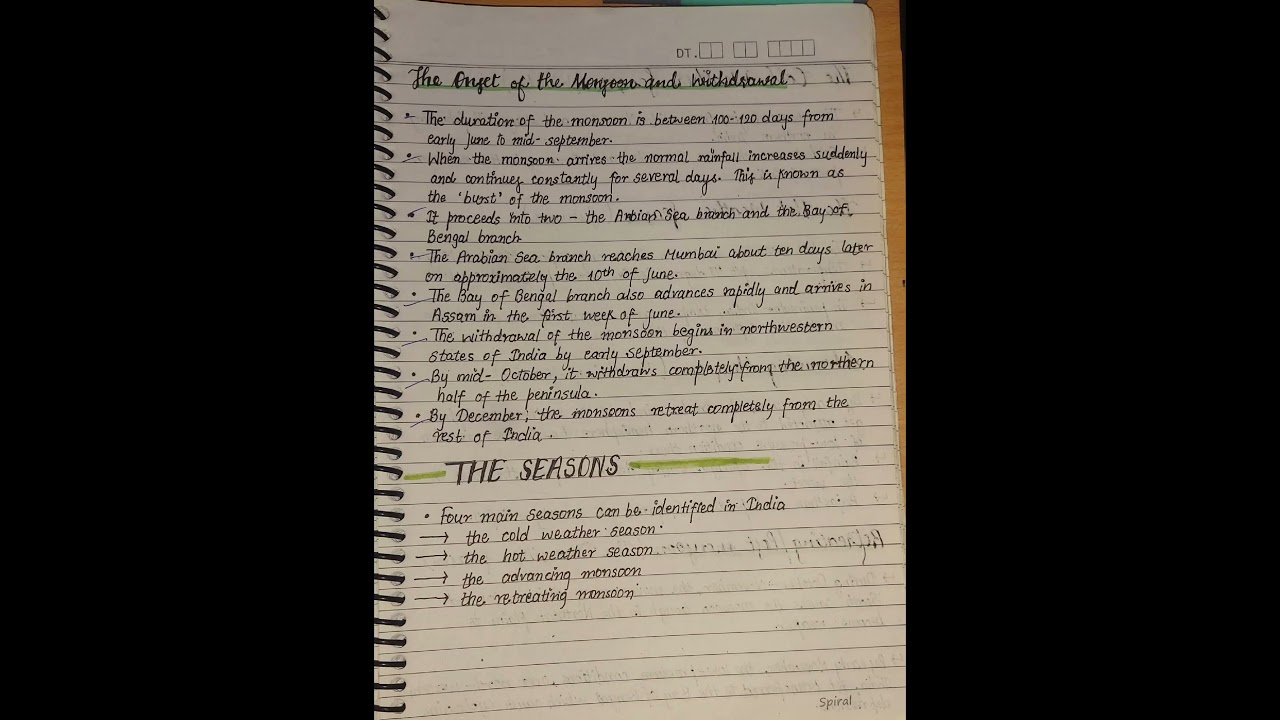 DT.
The Onset of the Monsoon and Withdrawal
• The duration of the monsoon is between 100-120 days from
early June to mid- september.
• When the monsoon arrives the normal rainfall increases suddenly
and continues constantly for several days. This is known as
the 'burst' of the monsoon.
• It proceeds into two - the Arabian Sea branch and the Bay of
Bengal branch
• The Arabian Sea branch reaches Mumbai about ten days later
on approximately the 10th of June.
• The Bay of Bengal branch also advances rapidly and arrives in
Assam in the first week of June.
• The withdrawal of the monsoon begins in northwestern
states of India by early september.
• By mid- October, it withdraws completely from the northern
half of the peninsula.
• By December, the monsoons retreat completely from the
rest of India.
THE SEASONS
• Four main seasons can be identified in India
→ the cold weather season.
→ the hot weather season
→ the advancing monsoon
→ the retreating monsoon
Spiral